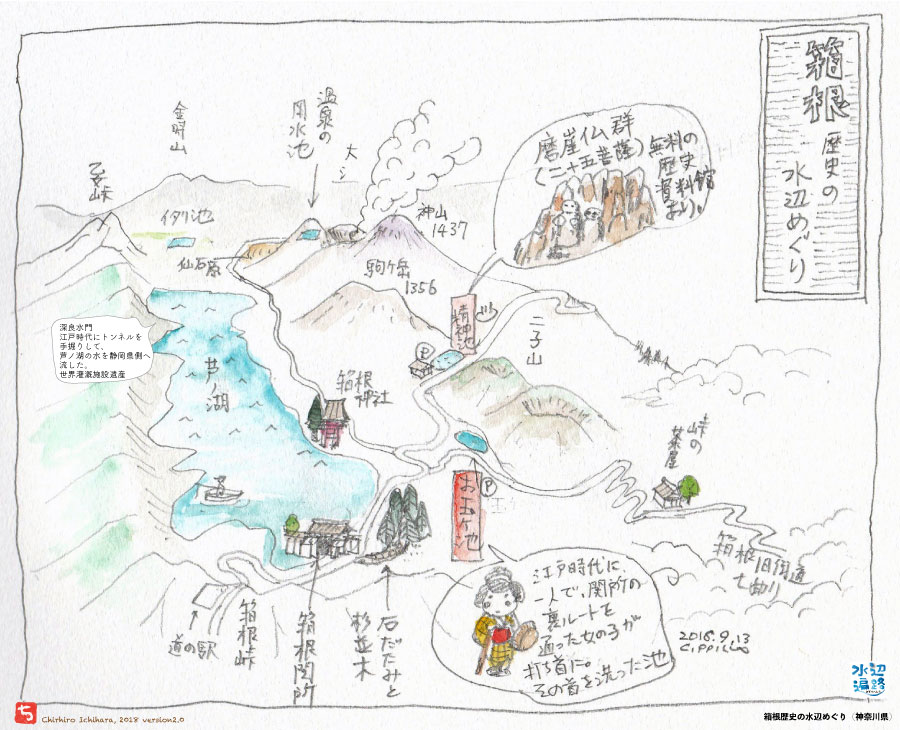 箱根
歴史の
水辺めぐり
金時山
乙女峠
温泉の
用水池
イタリ池
仙石原
神山
1437
駒ヶ岳
1356
磨崖仏群
(二十五菩薩)
無料の
歴史
資料館
あり。
精神池
P
二子山
深良水門
江戸時代にトンネルを
手掘りして、
芦ノ湖の水を静岡県側へ
流した。
世界灌漑施設遺産
芦ノ湖
箱根
神社
峠の
茶屋
P
お玉ヶ池
箱根旧街道
七曲り
道の駅
箱根峠
箱根関所
石だたみと
杉並木
江戸時代に、
一人で、関所の
裏ルートを
通った女の子が
打ち首に。
その首を洗った池
2016.9.13
水辺
遍路
ち
Chirhiro Ichihara, 2018 version2.0
箱根歴史の水辺めぐり（神奈川県）